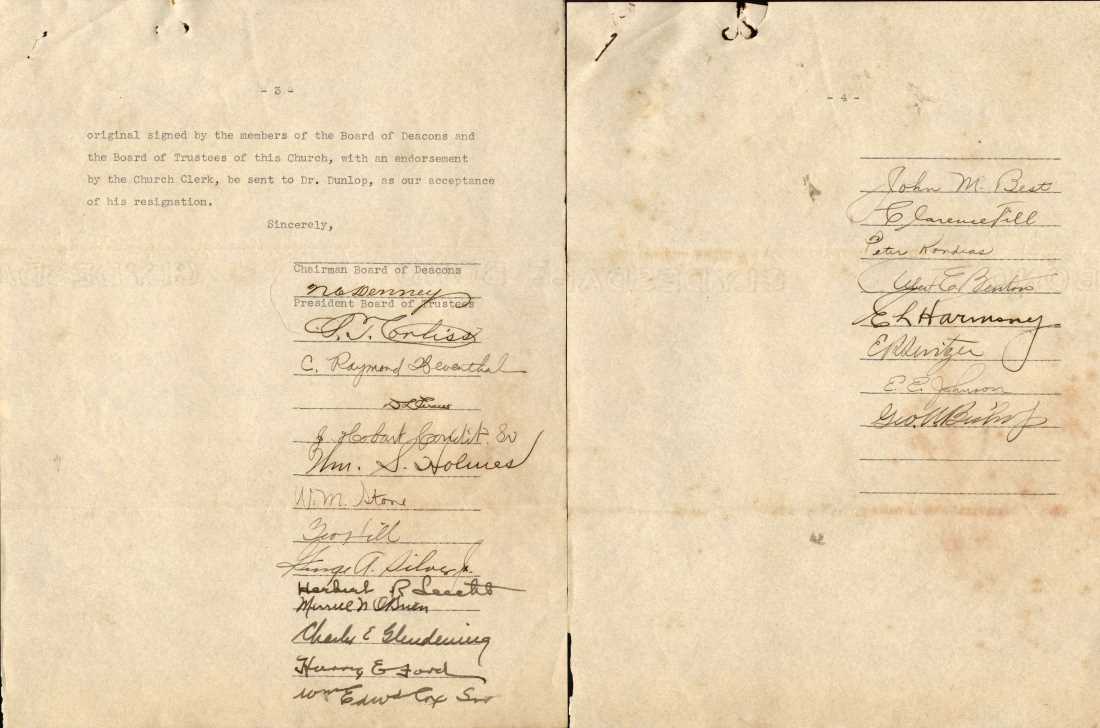 - 3 -
original signed by the members of the Board of Deacons and
the Board of Trustees of this Church, with an endorsement
by the Church Clerk, be sent to Dr. Dunlop, as our acceptance
of his resignation.
Sincerely,
Chairman Board of Deacons
Denney
President Board of Trustees
S. T. Corliss
C. Raymond Heventhal
J Hobart Sr
Wm. S. Holmes
W. M. Stone
Geo Hill
George A. Silver Jr.
Herbert R
Merrill N O'Brien
Charles E Glendening
Harry E Ford
Wm Edwd Cox Snr
- 4 -
John M. Best
Clarence Till
Peter
Benton
E L Harmony
E. E. Johnson
Geo Bishop